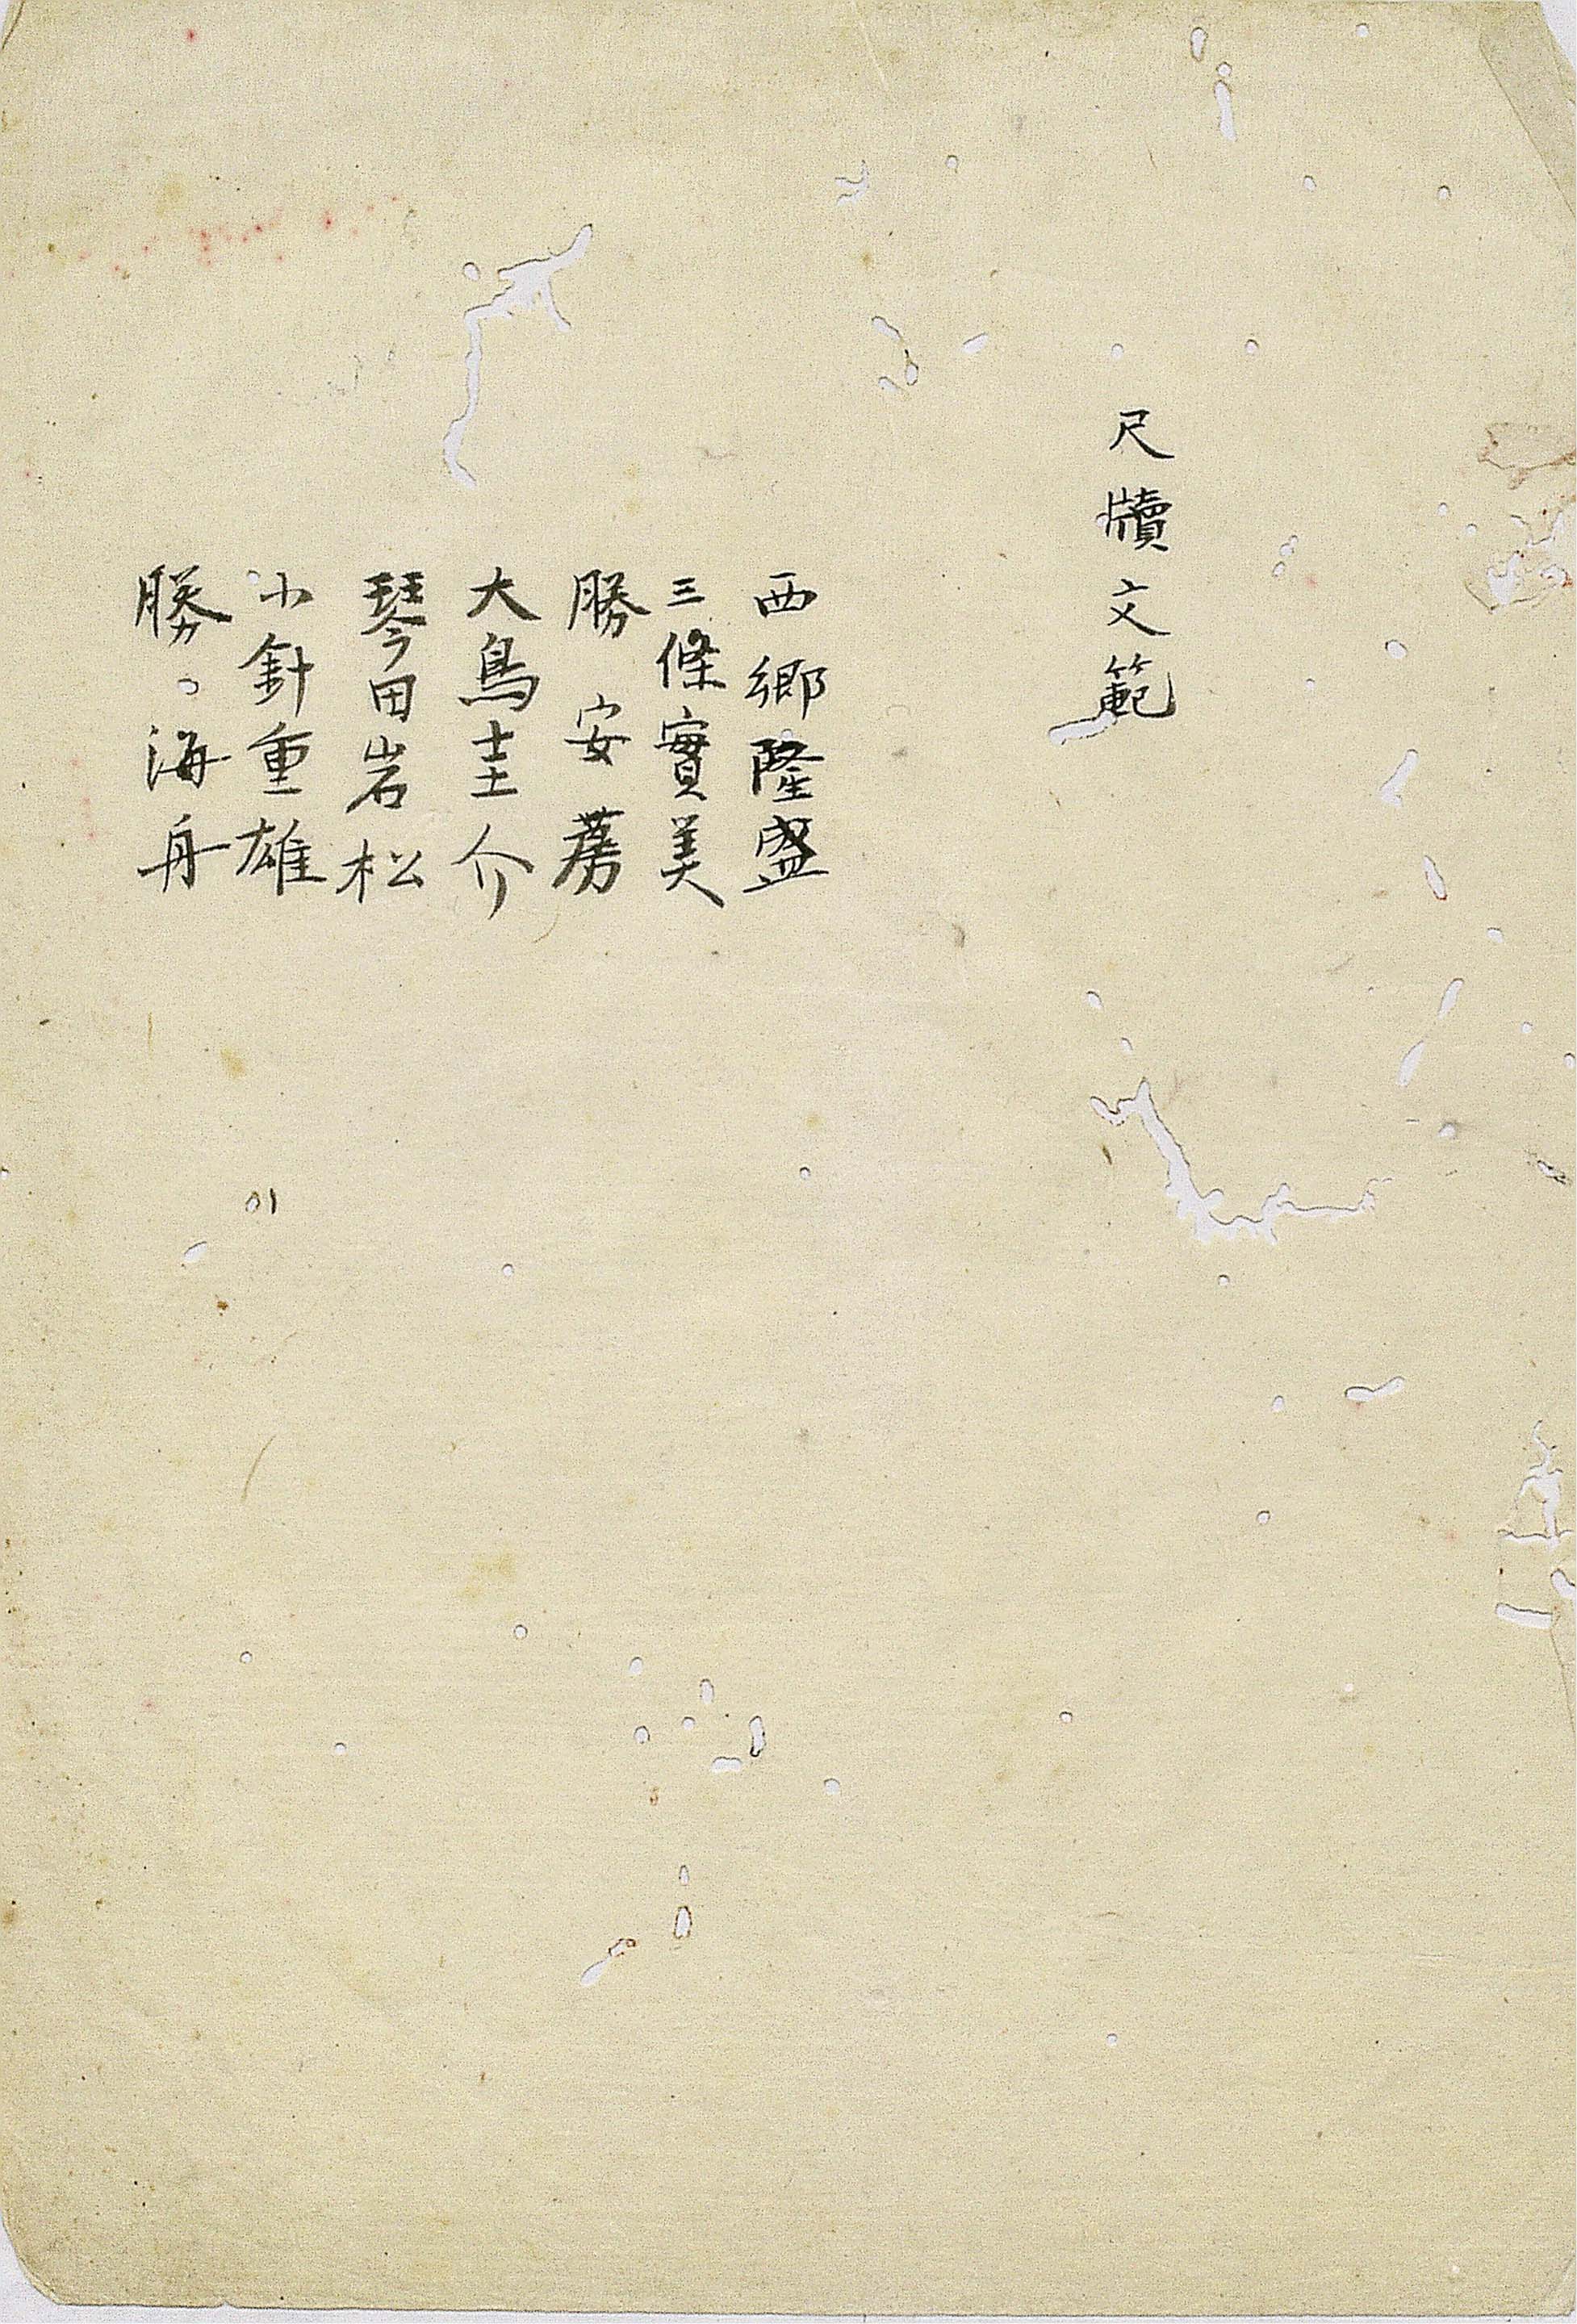 尺牘文範
西郷隆盛
三條實美
勝 安芳
大鳥圭介
琴田岩松
小針重雄
勝海舟